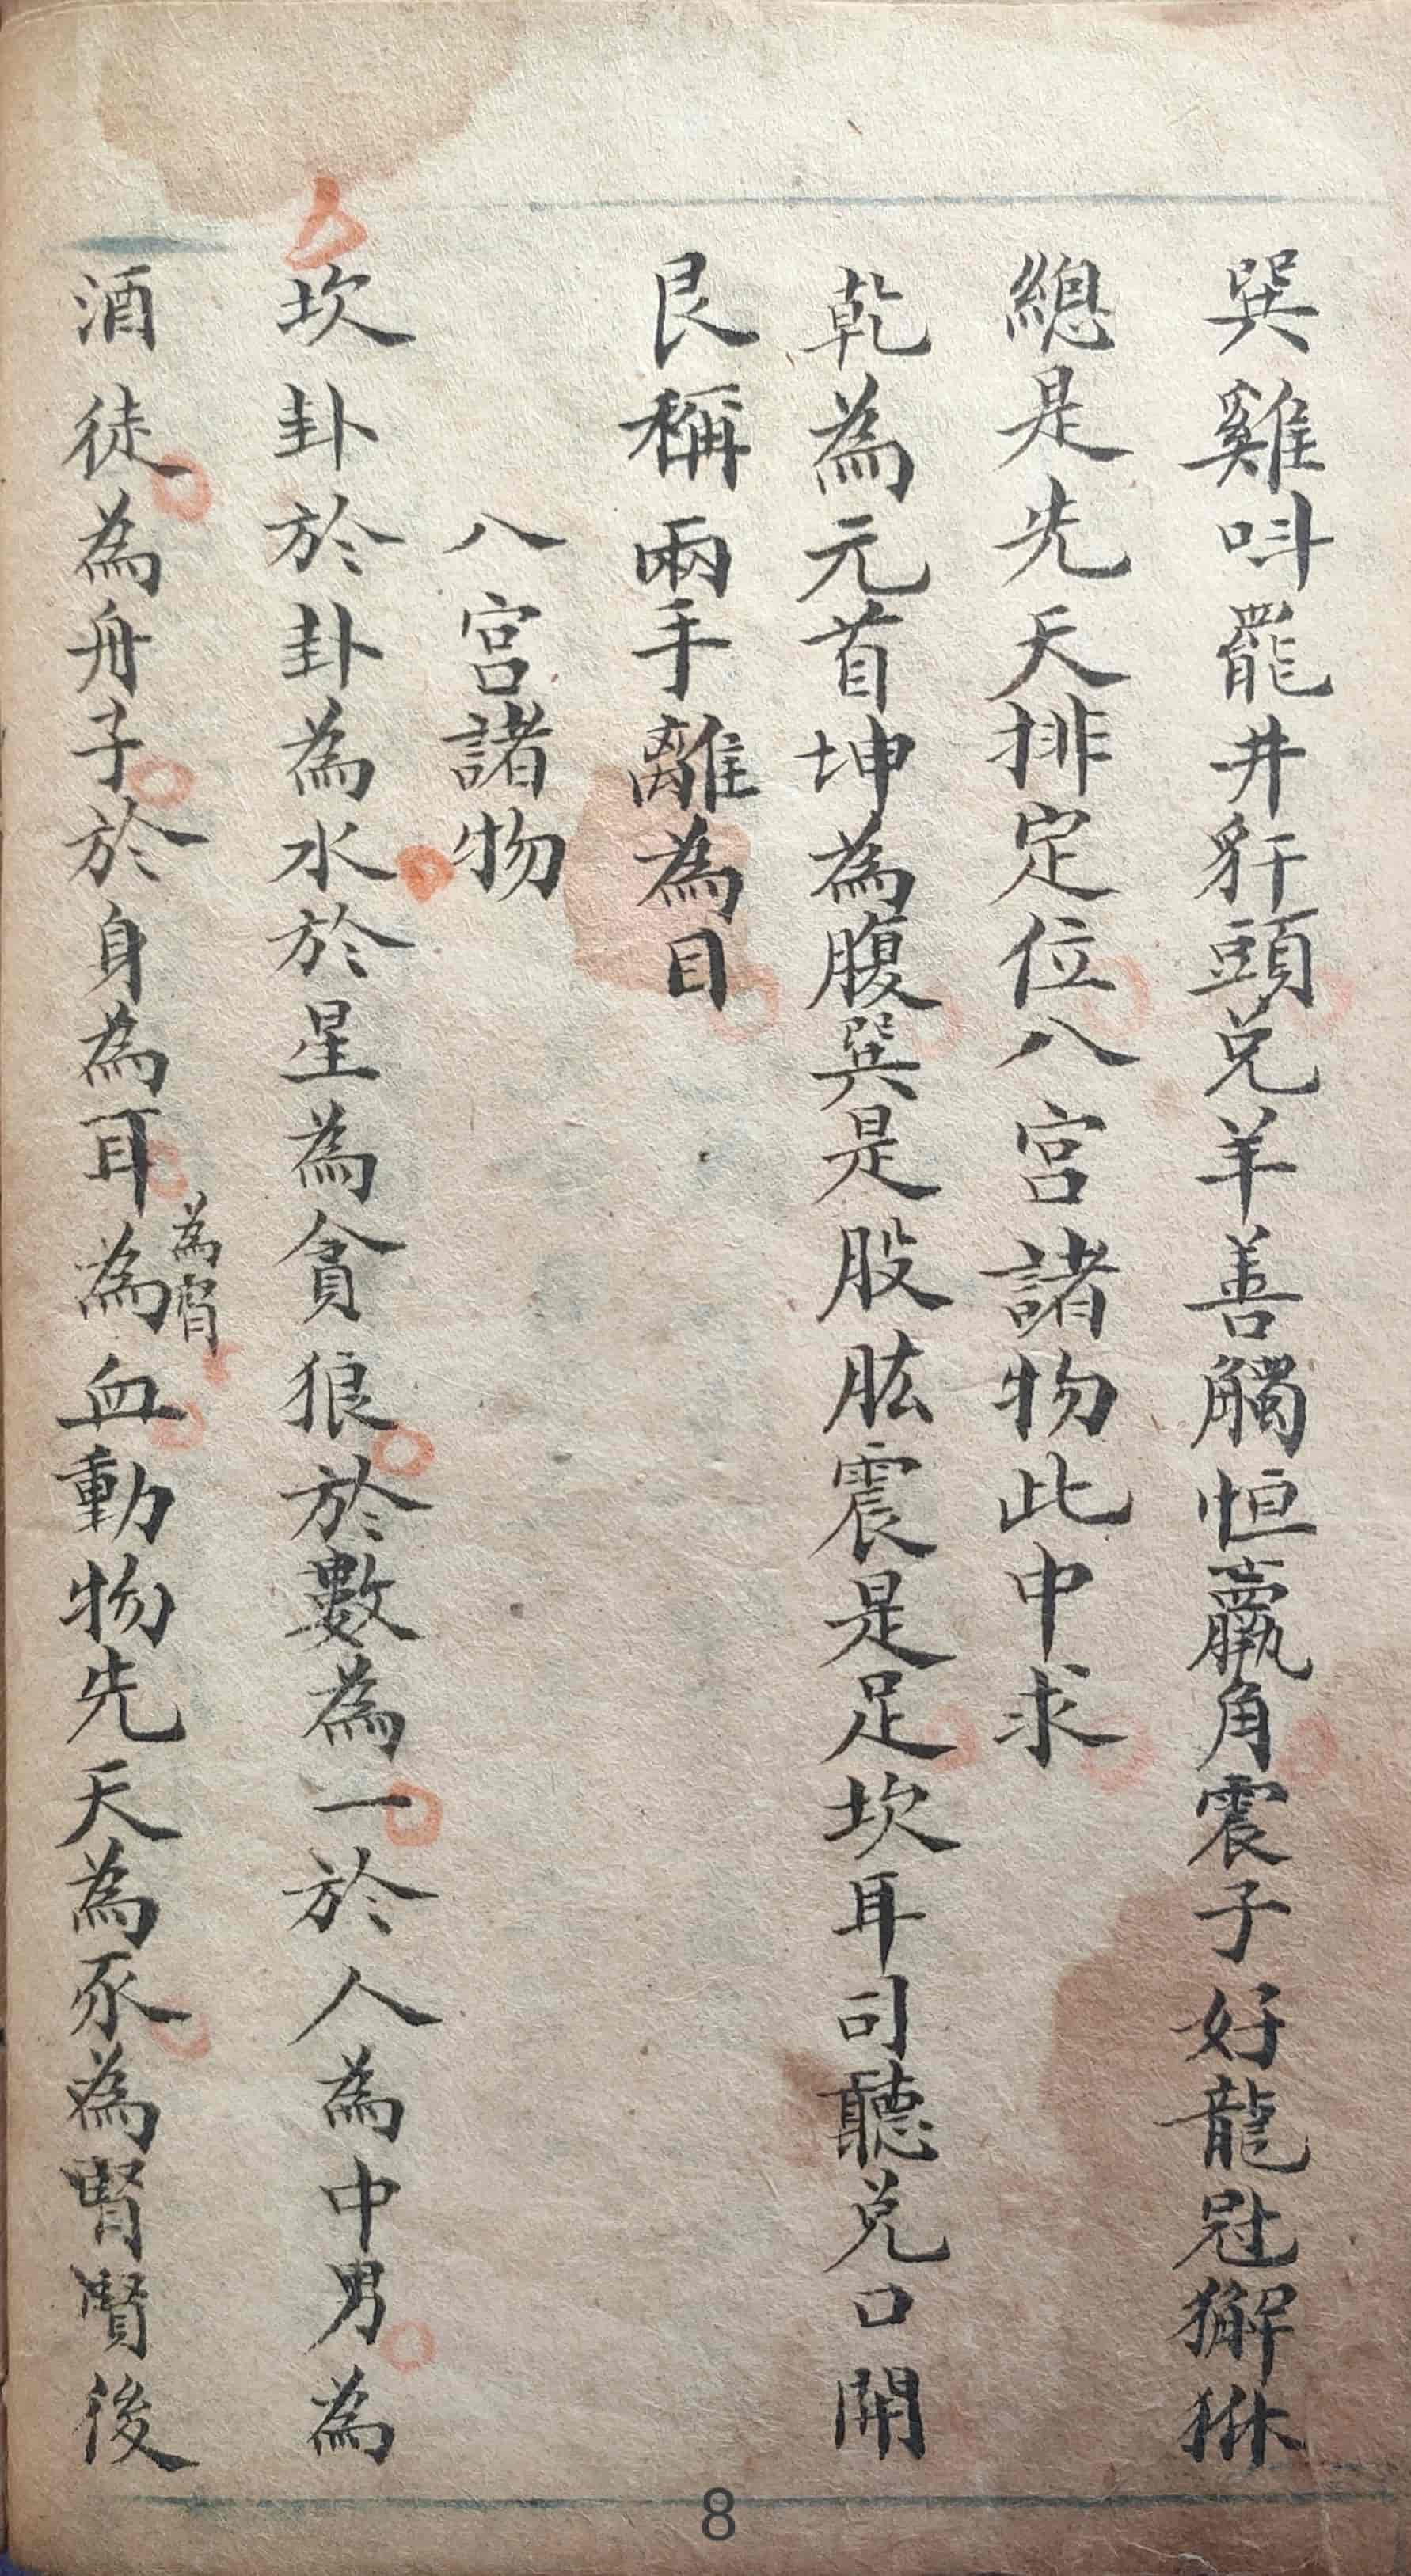 巽雞呌罷井豻頭兌羊善觸恒羸角震子好龍冠獬狳
總是先天排定位八宮諸物此中求
乾為元首坤為腹巽是股肱震是足坎耳司聽兌口開
艮稱兩手離為目
八宮諸物
坎卦於卦為水於星為貪狼於數為一於人為中男為
酒徒為舟子於身為耳為血動物先天為豕為腎賢後
為腎
8